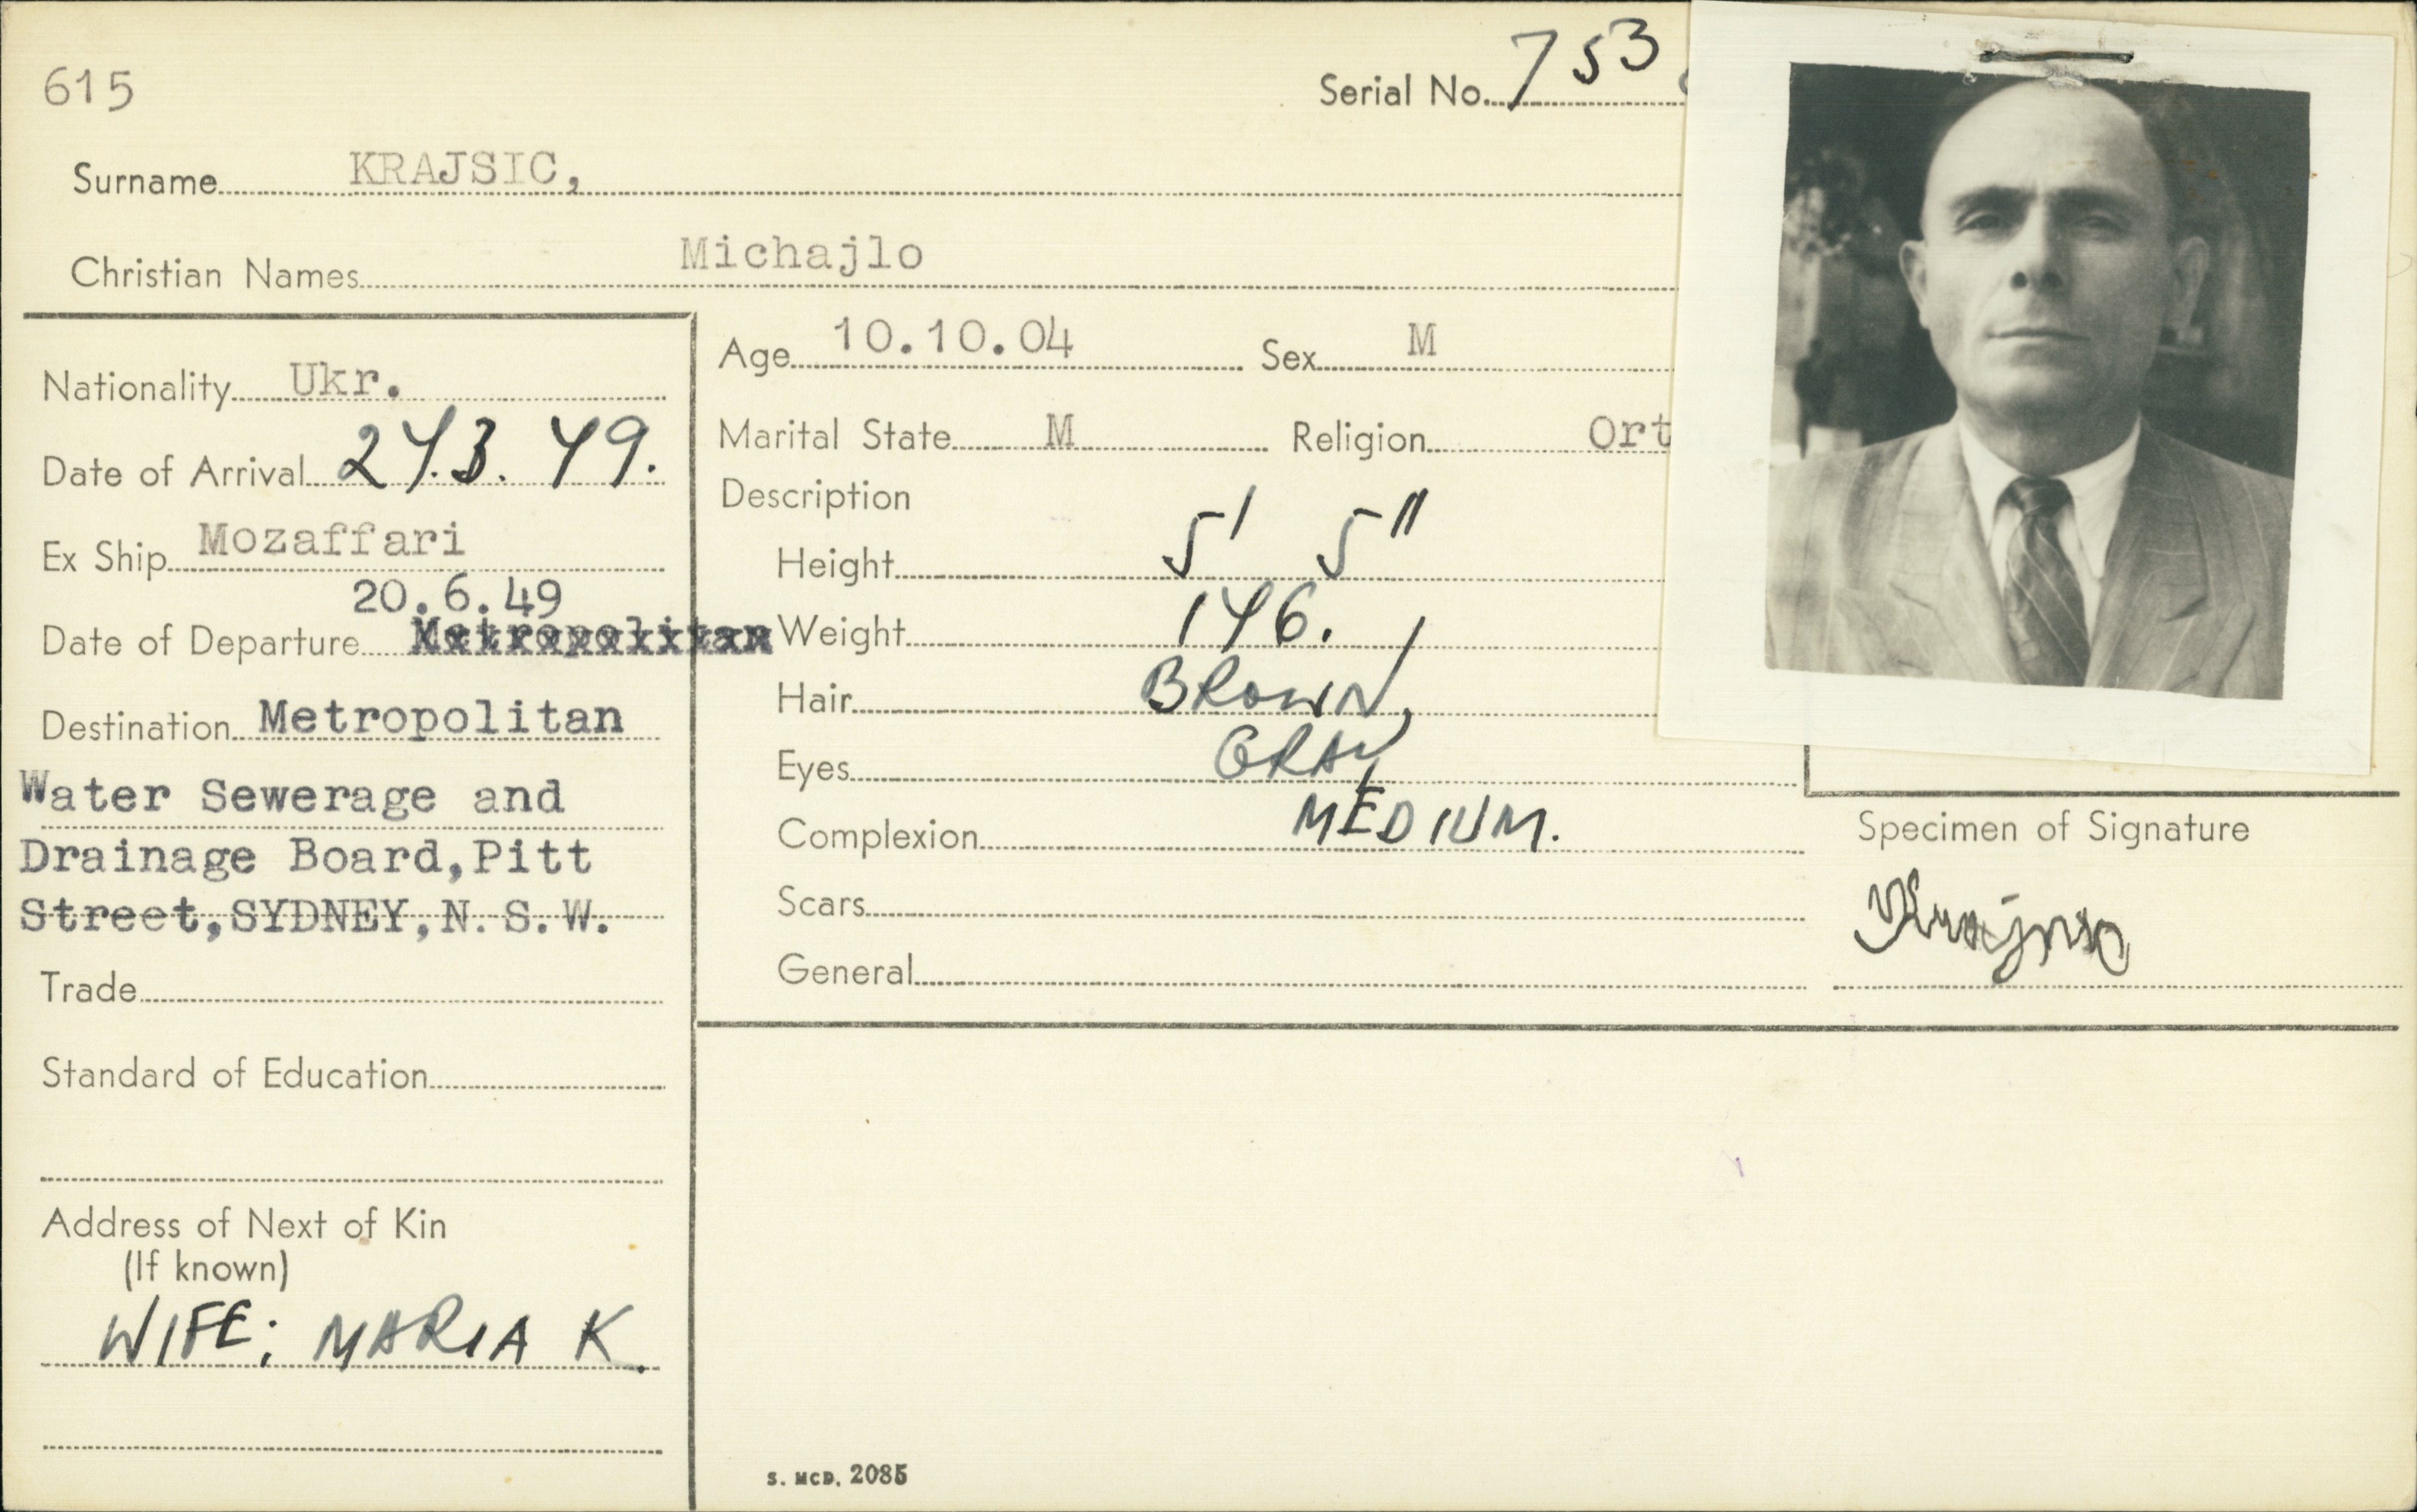 615
Serial No. 753
Surname KRAJSIC,
Christian Names Michajlo
Nationality Ukr.
Date of Arrival 24.3.49.
Ex Ship Mozaffari
20.6.49
Date of Departure Metropolitan
Destination Metropolitan
Water Sewerage and
Drainage Board,Pitt
Street,SYDNEY,N.S.W.
Trade
Standard of Education
Address of Next of Kin
(If known)
WIFE: MARIA K.
Age 10.10.04 Sex M
Marital State M Religion Ort
Description
Height 5' 5"
Weight 146.
Hair BROWN,
Eyes GRAY
Complexion MEDIUM.
Scars
General
Specimen of Signature
S. MCD. 2085